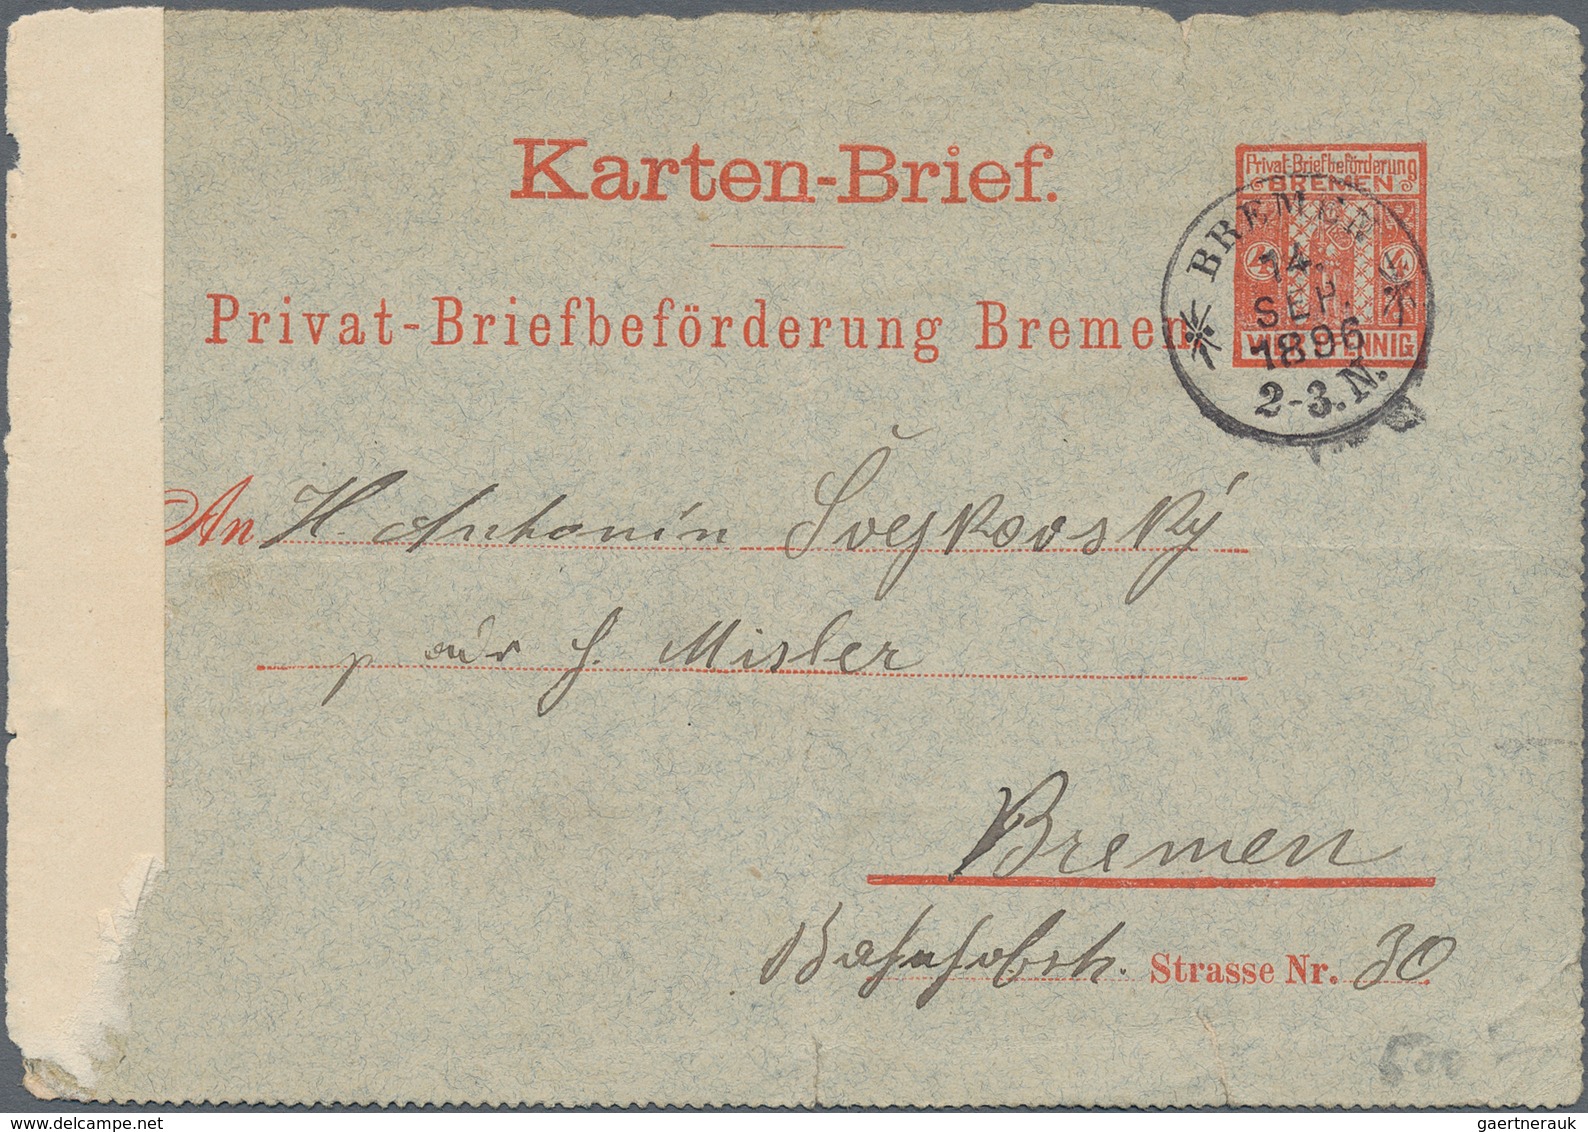 Karten-Brief.
Privat-Briefbeförderung
BREMEN
4 4
VIER PFENNIG
BREMEN
14.
SEP.
1896
2-3.N.
Privat-Briefbeförderung Bremen.
An H. Antonín Švejkovský
F. Misler
Bremen
Bahnhofstr. Strasse Nr. 30
500
delcampe.net
gaertnerauk